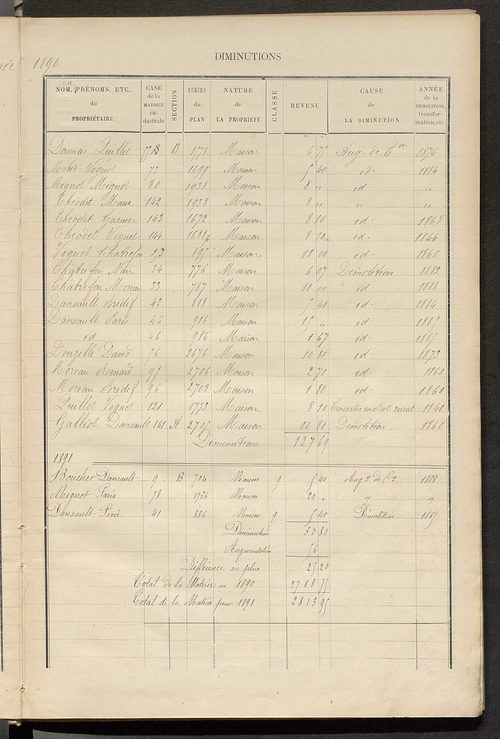 1890
DIMINUTIONS
NOM, PRÉNOMS, ETC, du PROPRIÉTAIRE CASE de la MATRICE cadastrale SECTION NUMÉRO du PLAN NATURE de LA PROPRIÉTÉ CLASSE REVENU CAUSE de LA DIMINUTION ANNÉE de la DÉMOLITION, transformation, etc.
B 1771 Maison 6 77 Aug. de C.on 1876
Voguet 73 1699 Maison 5 40 id. 1884
Mignot Mignot 80 1938 Maison 8 " id. "
142 1938 Maison 8 " " "
143 1672 Maison 8 10 id. 1868
Voguet 144 Maison 8 10 id. 1844
Voguet 173 895 Maison 11 00 id. 1860
34 776 Maison 6 07 Démolition 1882
Moreau 33 787 Maison 10 00 id. 1888
Dansault Bredif 43 818 Maison 5 40 id. 1884
Dansault Paris 46 986 Maison 17 " id. 1887
id 46 986 Maison 1 67 id. 1887
David 56 2676 Maison 10 80 id. 1873
Moreau 95 2706 Maison 2 70 id. 1860
Moreau Bredif 96 2708 Maison 1 80 id. 1860
Voguet 121 1773 Maison 8 10 Convertie en bat. rural 1840
Dansault 161 A 2705 Maison 10 80 Démolition 1860
Diminutions 127 69
1891
Boucher Dansault 9 B 704 Maison 9 5 40 Aug.on de C.on 1888
Mignot Paris 78 1736 Maison 20 " " "
Dansault 41 886 Maison 9 5 40 Démolition 1887
Diminution 30 80
Augmentation 56
Différence en plus 25 20
Total de la Matrice en 1890 2788 75
Total de la Matrice pour 1891 2813 95